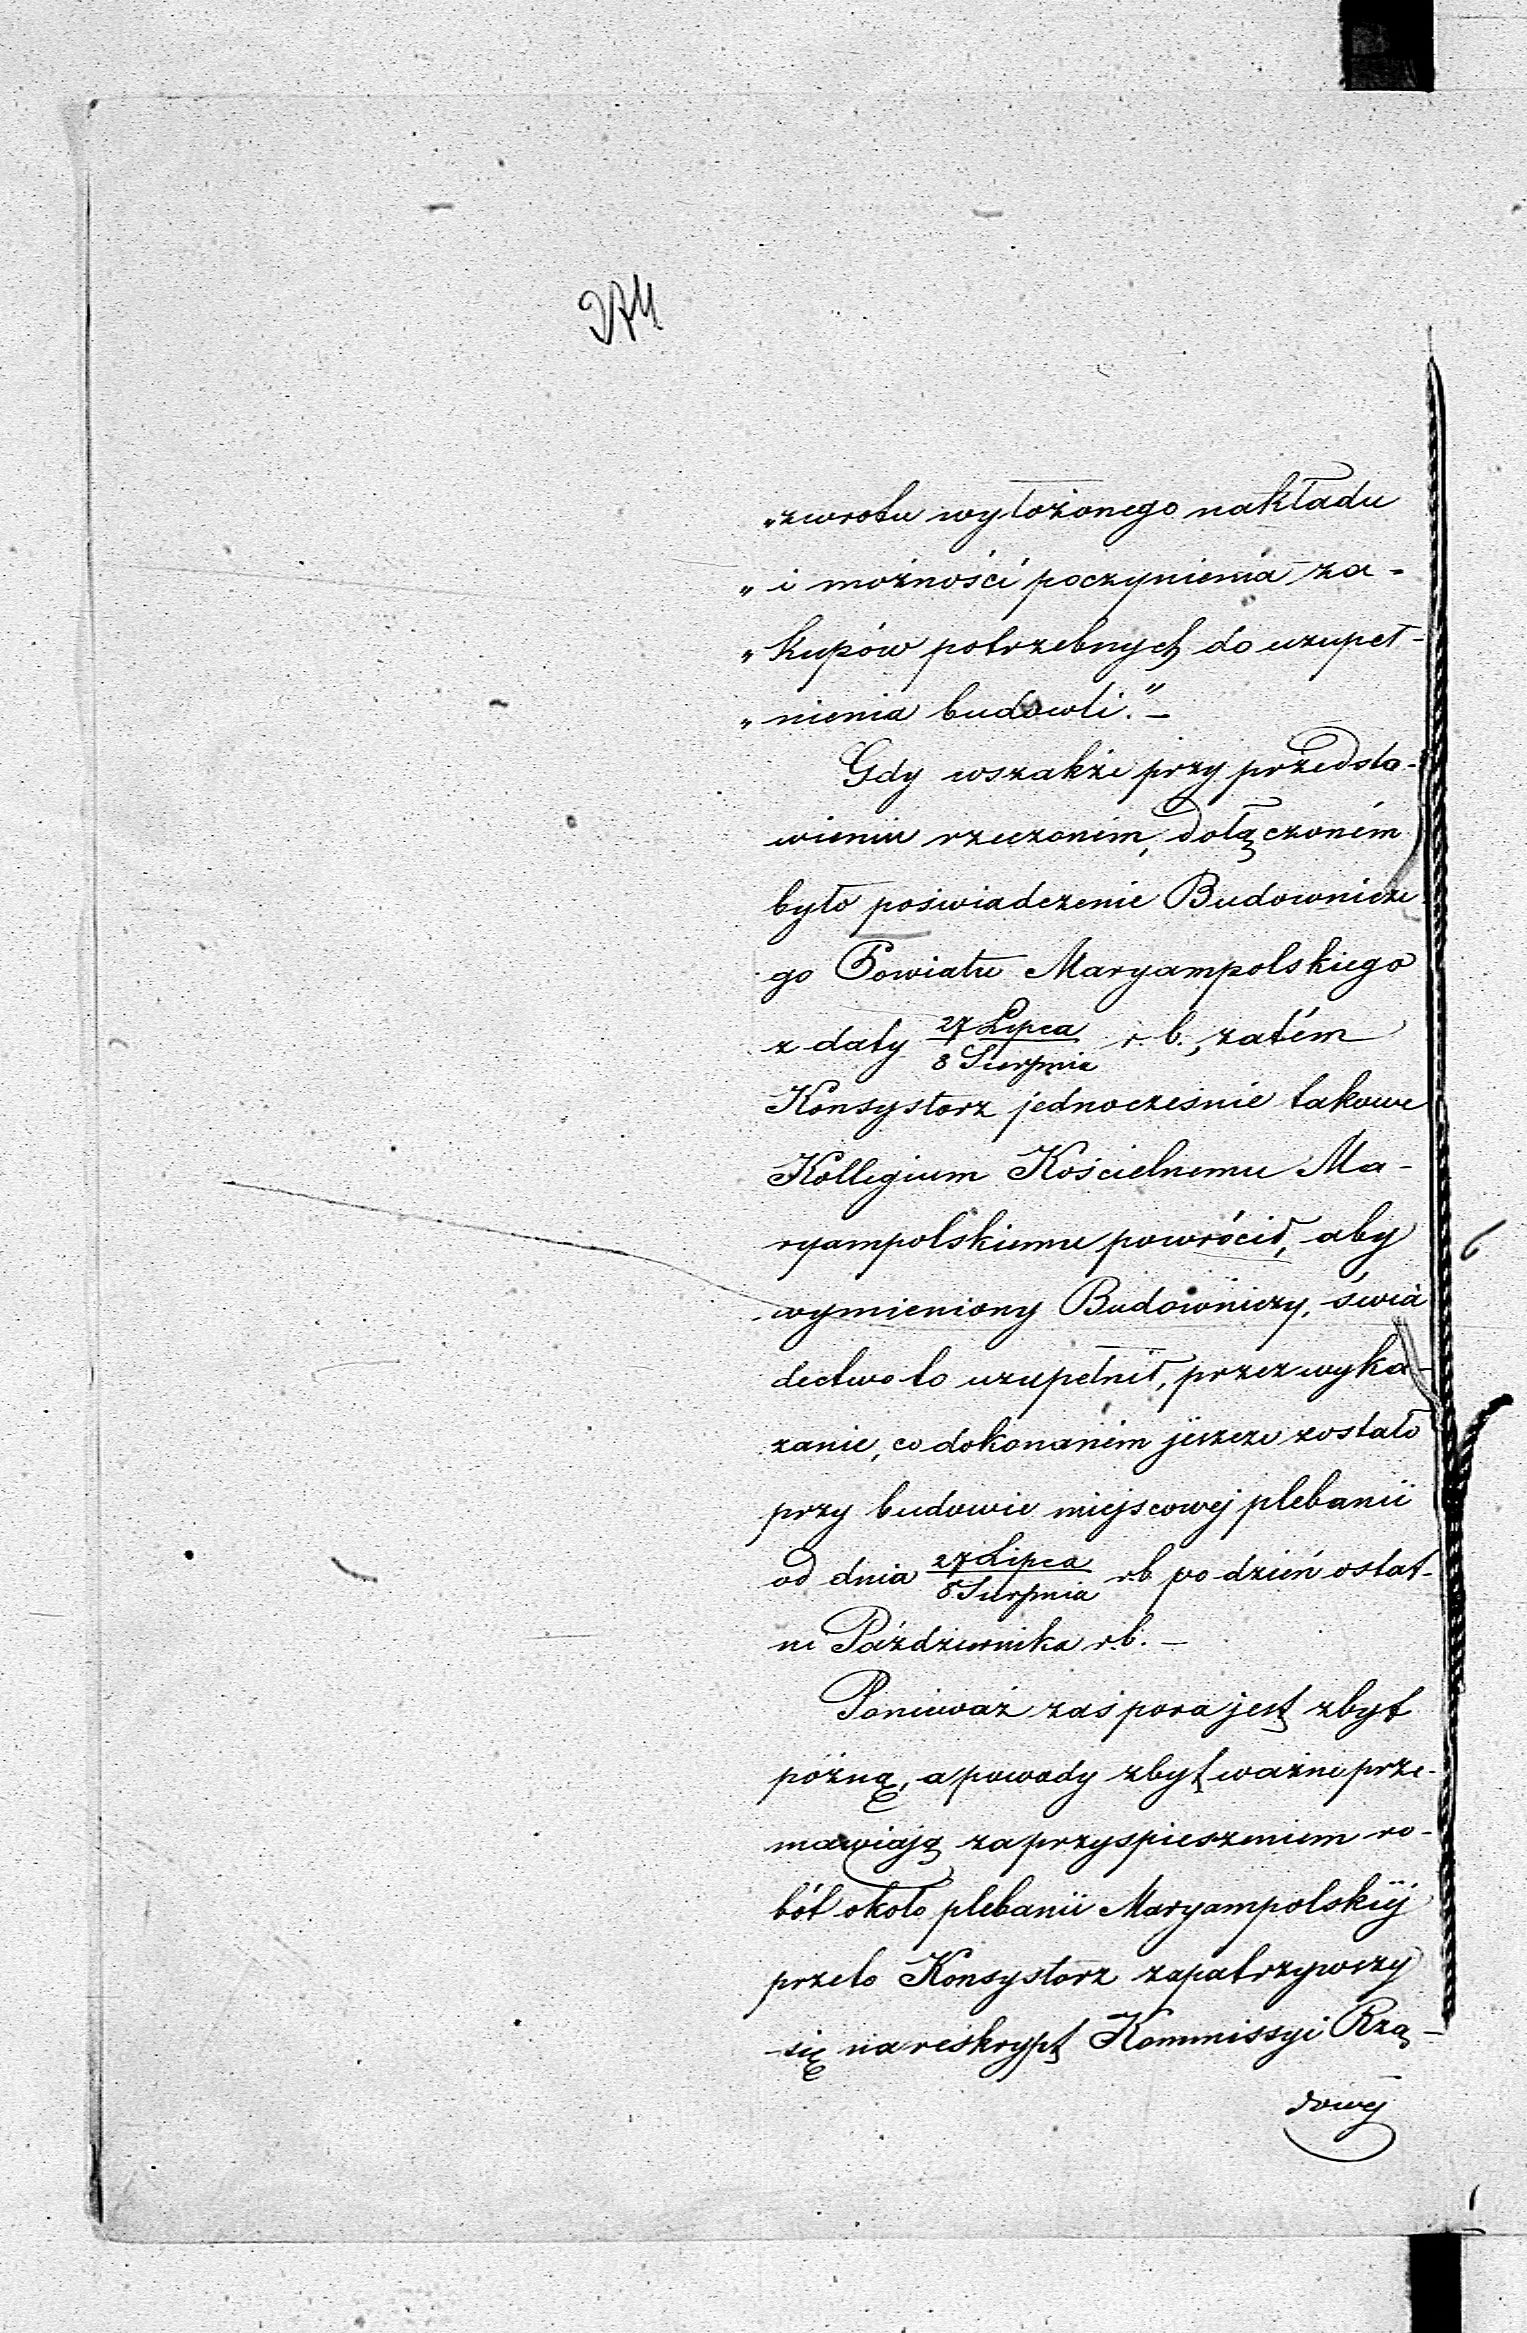 „zwrotu wyłożonego nakładu
„i możności poczynienia za-
„kupów potrzebnych do uzupeł-
„nienia budowli."–
Gdy wszakże przy przedsta-
wieniu rzeczoném, dołączoném
było poświadczenie Budownicze
go Powiatu Maryampolskiego
z daty 27 Lipca/8 Sierpnia r. b., zatém
Konsystorz jednocześnie takowe
Kollegium Kościelnemu Ma-
ryampolskiemu powrócił, aby
wymieniony Budowniczy, świa
dectwo to uzupełnił, przez wyka-
zanie, co dokonaném jeszcze zostało
przy budowie miejscowej plebanii
od dnia 27 Lipca/8 Sierpnia r.b. po dzień ostat-
ni Października r.b. –
Ponieważ zaś pora jest zbyt
późną, a powody zbyt ważne prze-
mawiają za przyspieszeniem ro-
bót około plebanii Maryampolskiéj
przeto Konsystorz zapatrzywszy
się na reskrypt Kommissyi Rzą-
dowéj